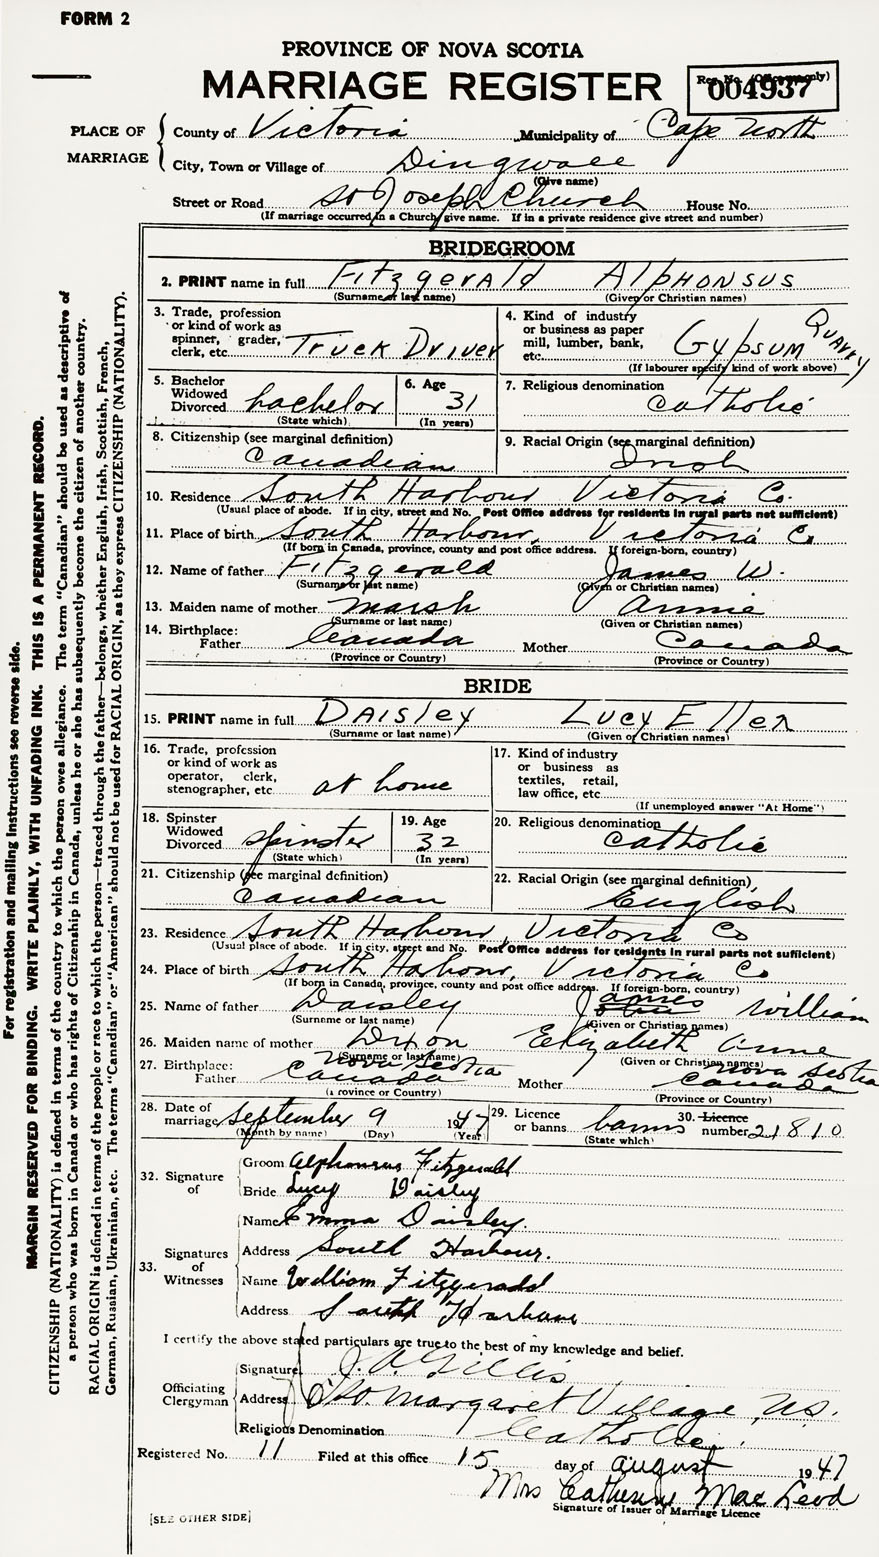 FORM 2
PROVINCE OF NOVA SCOTIA
MARRIAGE REGISTER
Reg. No. (Office use only)
004937
PLACE OF MARRIAGE
County of Victoria Municipality of Cape North
City, Town or Village of Dingwall
(Give name)
Street or Road St Joseph Church House No.
(If marriage occurred in a Church give name. If in a private residence give street and number)
BRIDEGROOM
2. PRINT name in full Fitzgerald Alphonsus
(Surname or last name) (Given or Christian names)
3. Trade, profession or kind of work as spinner, grader, clerk, etc. Truck Driver
4. Kind of industry or business as paper mill, lumber, bank, etc. Gypsum Quarry
(If labourer specify kind of work above)
5. Bachelor Widowed Divorced bachelor
(State which)
6. Age 31
(In years)
7. Religious denomination Catholic
8. Citizenship (see marginal definition) Canadian
9. Racial Origin (see marginal definition) Irish
10. Residence South Harbour Victoria Co.
(Usual place of abode. If in city, street and No. Post Office address for residents in rural parts not sufficient)
11. Place of birth South Harbour, Victoria Co
(If born in Canada, province, county and post office address. If foreign-born, country)
12. Name of father Fitzgerald James W.
(Surname or last name) (Given or Christian names)
13. Maiden name of mother Marsh Annie
(Surname or last name) (Given or Christian names)
14. Birthplace: Father Canada Mother Canada
(Province or Country) (Province or Country)
BRIDE
15. PRINT name in full Daisley Lucy Ellen
(Surname or last name) (Given or Christian names)
16. Trade, profession or kind of work as operator, clerk, stenographer, etc at home
17. Kind of industry or business as textiles, retail, law office, etc.
(If unemployed answer "At Home")
18. Spinster Widowed Divorced spinster
(State which)
19. Age 32
(In years)
20. Religious denomination Catholic
21. Citizenship (see marginal definition) Canadian
22. Racial Origin (see marginal definition) English
23. Residence South Harbour, Victoria Co
(Usual place of abode. If in city, street and No. Post Office address for residents in rural parts not sufficient)
24. Place of birth South Harbour, Victoria Co
(If born in Canada, province, county and post office address. If foreign-born, country)
25. Name of father Daisley James William
(Surname or last name) (Given or Christian names)
26. Maiden name of mother Dixon Elizabeth Anne
(Surname or last name) (Given or Christian names)
27. Birthplace: Father Nova Scotia Canada Mother Nova Scotia Canada
(Province or Country) (Province or Country)
28. Date of marriage September 9 1947
(Month by name) (Day) (Year)
29. Licence or banns banns
(State which)
30. Licence number 21810
32. Signature of
Groom Alphonsus Fitzgerald
Bride Lucy Daisley
33. Signatures of Witnesses
Name Emma Daisley.
Address South Harbour.
Name William Fitzgerald
Address South Harbour
I certify the above stated particulars are true to the best of my knowledge and belief.
Officiating Clergyman
Signature J. A. Gillis
Address St. Margaret Village, N.S.
Religious Denomination Catholic.
Registered No. 11 Filed at this office 15 day of August 1947
Mrs Catherine MacLeod
Signature of Issuer of Marriage Licence
[SEE OTHER SIDE]
For registration and mailing instructions see reverse side.
MARGIN RESERVED FOR BINDING. WRITE PLAINLY, WITH UNFADING INK. THIS IS A PERMANENT RECORD.
CITIZENSHIP (NATIONALITY) is defined in terms of the country to which the person owes allegiance. The term "Canadian" should be used as descriptive of
a person who was born in Canada or who has rights of Citizenship in Canada, unless he or she has subsequently become the citizen of another country.
RACIAL ORIGIN is defined in terms of the people or race to which the person—traced through the father—belongs, whether English, Irish, Scottish, French,
German, Russian, Ukrainian, etc. The terms "Canadian" or "American" should not be used for RACIAL ORIGIN, as they express CITIZENSHIP (NATIONALITY).